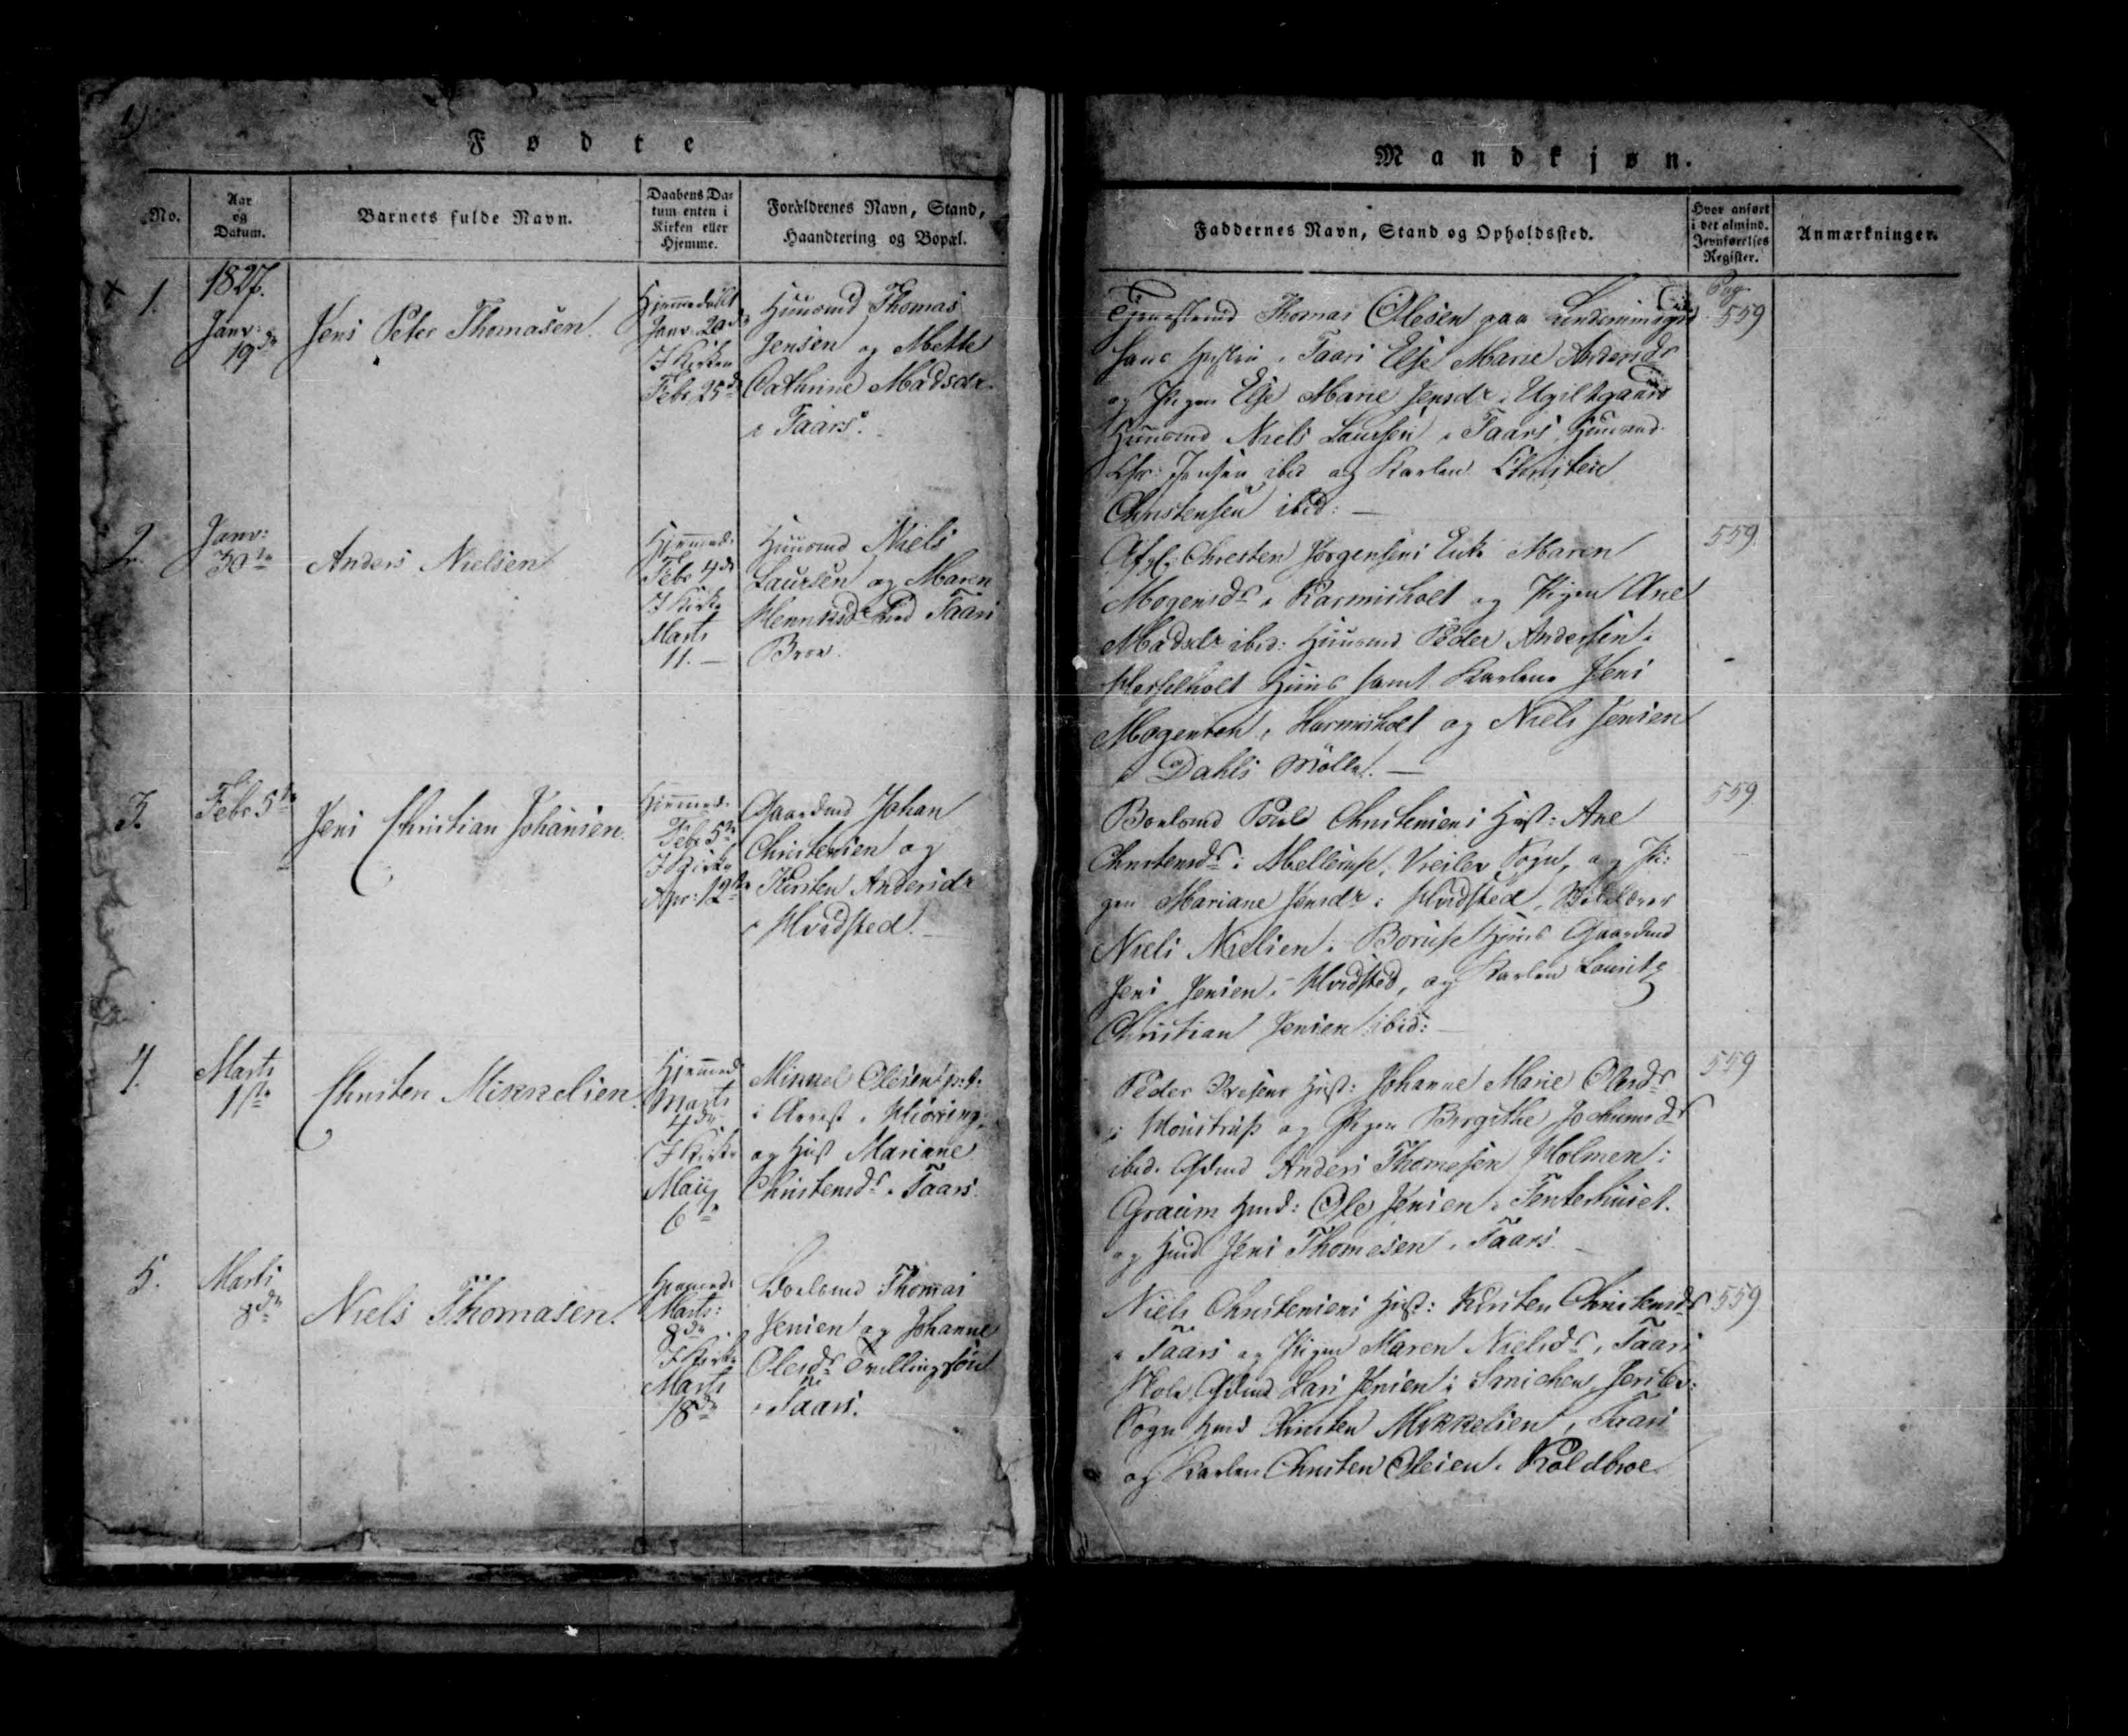 Fødte
No.
Aar
og
Datum.
Barnets fulde Navn.
Daabens Da-
tum enten i
Kirken eller
Hjemme.
Forældrenes Navn, Stand,
Haandtering og Bopæl.
1.
1827.
Janv:
19de
Jens Peter Thomasen
Hjemmedöbt
Janv: 20de
I Kirken
Febr 25de
Huusmd Thomas
Jensen og Mette
Cathrine Madsdr.
i Taars.
2.
Janv:
30te
Anders Nielsen
Hjemmed.
Febr 4de
I Kirke
Marts
11. —
Huusmd Niels
Laursen og Maren
Henriksdr ved Taars
Broe.
3.
Febr 5te
Jens Christian Johansen.
Hjemmed.
Febr 5te
I Kirke
Apr: 12te
Gaardmd Johan
Christensen og
Kirsten Andersdr
i Hvidsted.
4.
Marts
1ste
Christen Mikkelsen.
Hjemmed
Marts
4de
I Kirke
Maij
6te
Mikkel Olesen
i Arrest i Hiöring,
og Hust Mariane
Christensdr i Taars.
5.
Marts
8de
Niels Thomasen.
Hjemmed.
Marts:
8de
I Kirke
Marts
18de
Boelsmd Thomas
Jensen og Johanne
Olesdr Tvillingsön
i Taars.
Mandkjøn.
Faddernes Navn, Stand og Opholdssted.
Hvor anført
i det almind.
Jevnførelses
Register.
Anmærkninger.
Pag.
559
Thomas Olesen paa
hans i Taars Else Marie Andersdr
og Pigen Else Marie Jensdr i Ugiltgaard
Huusmd Niels Laursen i Taars, Huusmd
Chr: Jensen ibid og Karlen Christen
Christensen ibid: —
559
Afg: Chresten Jörgensens Enke Maren
Mogensdr i Karmisholt og Pigen Ane
Madsdr ibid: Huusmd Peder Andersen i
Hesselholt Huus samt Karlene Jens
Mogensen i Harmisholt og Niels Jensen
i Dahls Mölle. —
559
Boelsmd Poul Christensens Hust: Ane
Christensdr i Mellerup, Vreilev Sogn, og Pi-
gen Mariane Jensdr i Hvidsted,
Niels Nielsen i Borup Huus Gaardmd
Jens Jensen i Hvidsted, og Karlen Lauritz
Christian Jensen ibid: —
559
Peder Hust: Johanne Marie Olesdr
i Houstrup og Pigen Birgithe Jochumsdr
ibid. Gdmd Anders Thomesen Holmen i
Graum Hmd: Ole Jensen i Tenterhuset.
og Hmd Jens Thomesen i Taars. —
559
Niels Christensens Hust: Kirsten Christensdr
i Taars og Pigen Maren Nielsdr i Taars
Skole Gdmd Lars Jensen i Smidien, Jerslev
Sogn Hmd Christen Mikkelsen i Taars
og Karlen Christen Olesen i Koldbroe